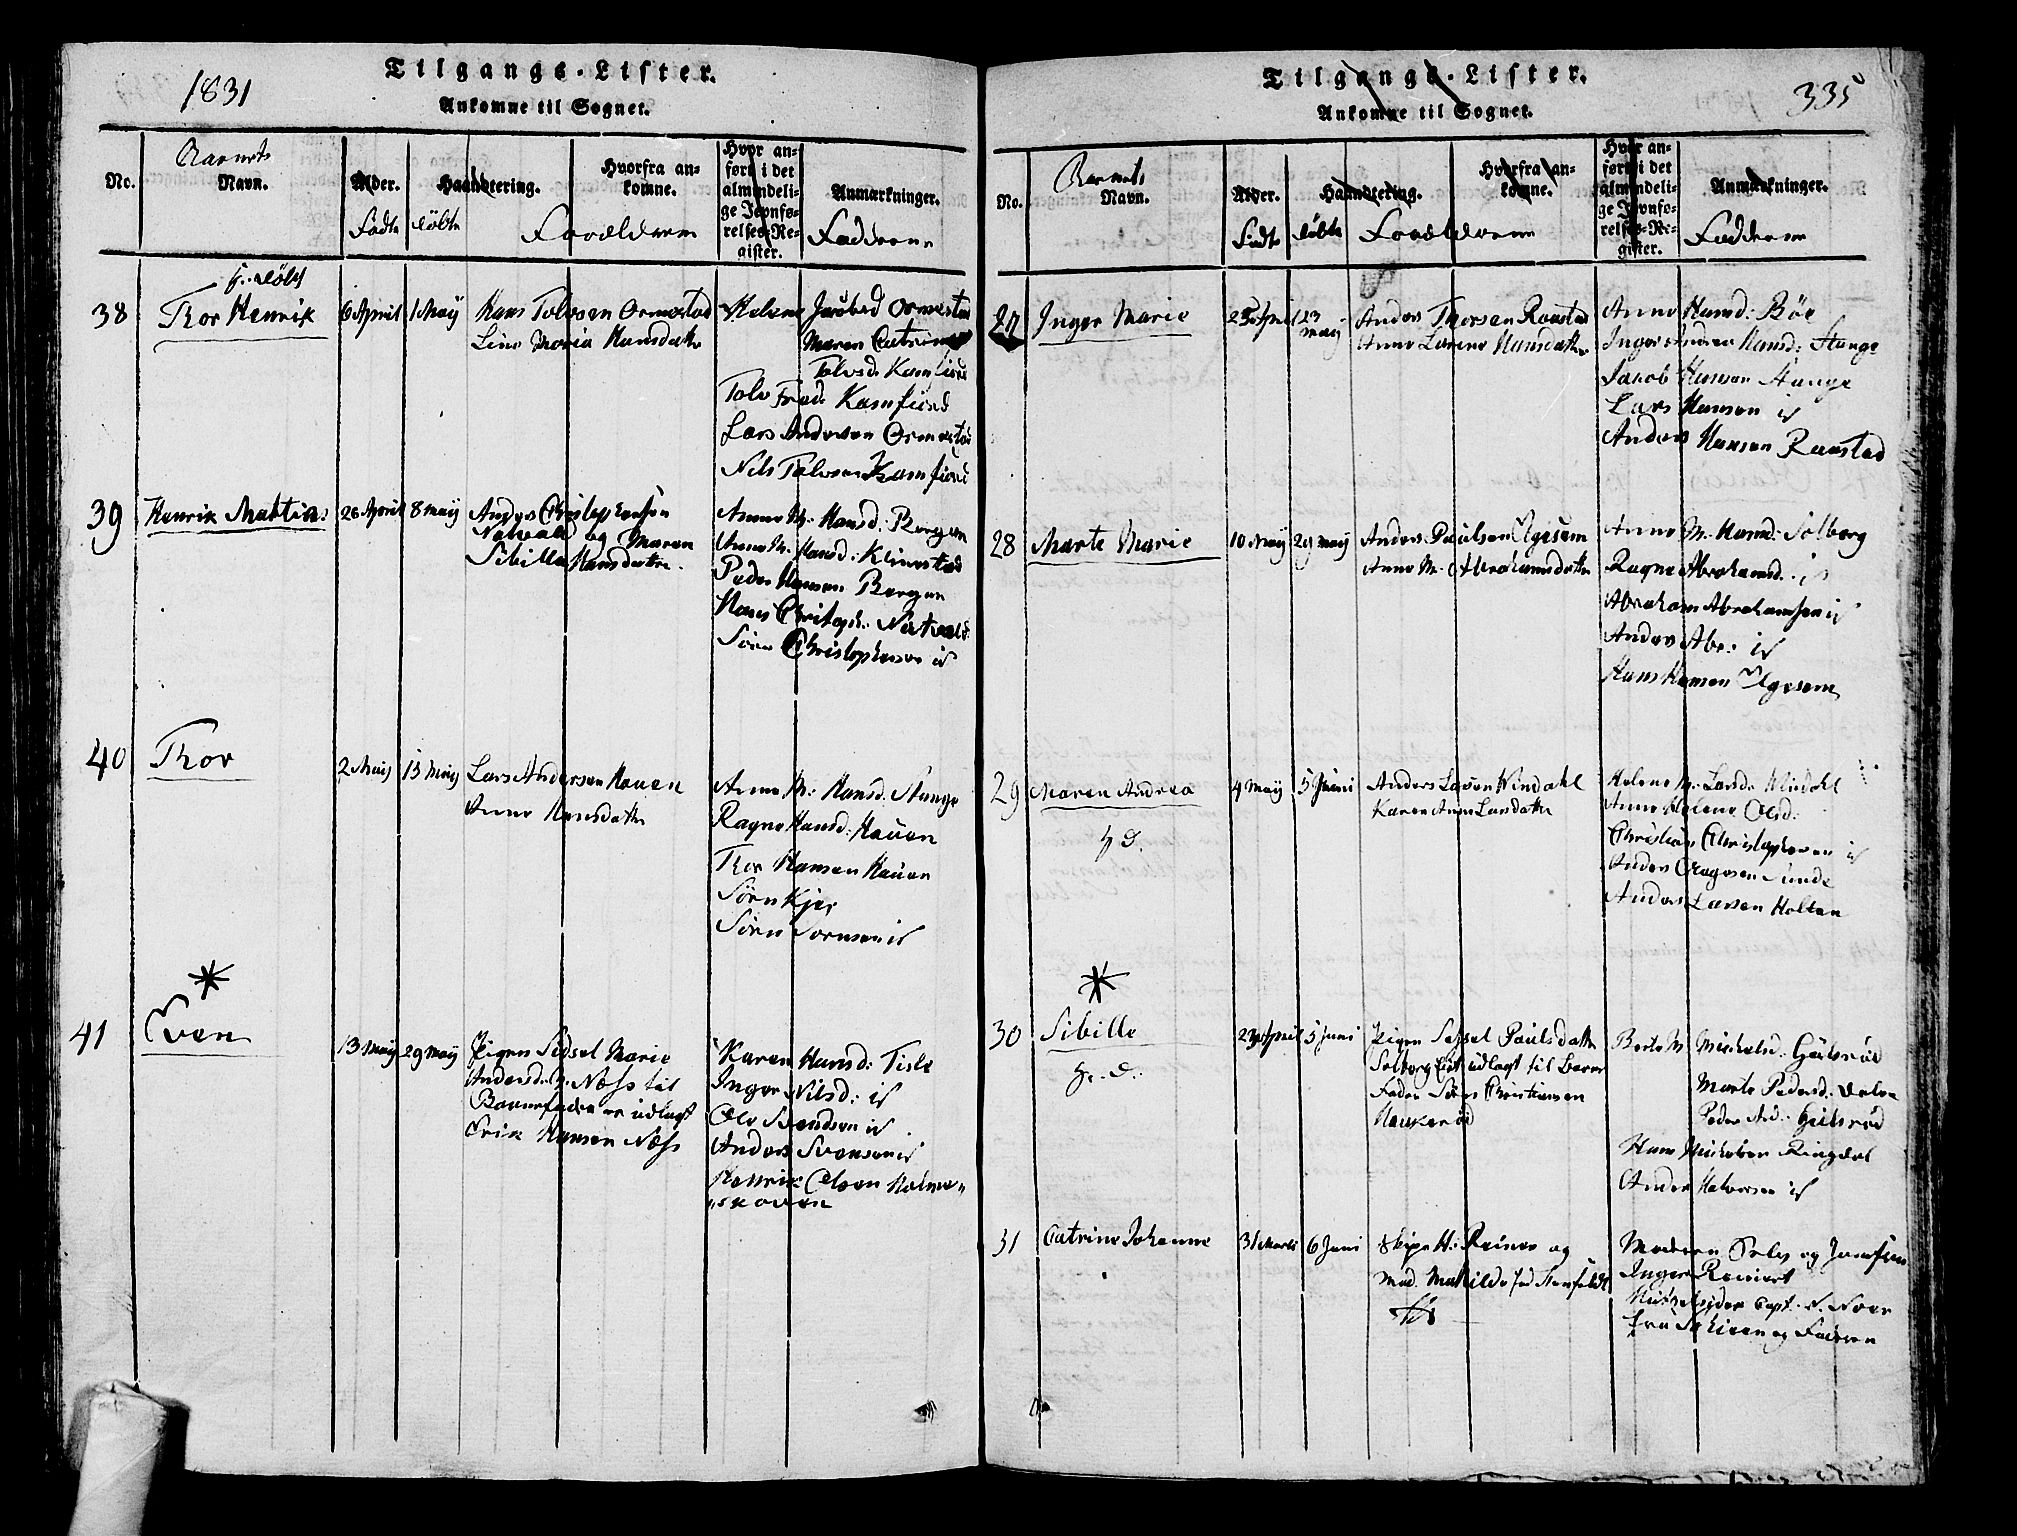 1831
Tilgangs-Lister.
Ankomne til Sognet.
No.
Barnets
Navn.
Alder.
Fødte
døbte
Haandtering.
Hvorfra an-
komne.
Forældrene
Hvor an-
ført i det
almindeli-
ge Jevnfø-
relses-Re-
gister.
Anmærkninger.
Faddrene
38
hj. døbt
Thor Henrik
6 April
1 May
Hans Tolvsen Ormestad
Line Maria Hansdatte
Helene Jacobsd Ormestad
Maren Catrine
Tolvsd. Kamfiord
Tolv Fred: Kamfiord
Lars Andersen Ormestad
Nils Tolvsen Kamfiord
39
Henrik Mathias
26 April
8 May
Anders Christophersen
Natvald og Maren
Sibilla Hansdatte.
Anne M: Hansd: Bergan
Anne M. Hansd: Klinestad
Peder Hansen Bergan
Hans Christoph: Natvald
Sören Christophersen id
40
Thor
2 Maij
15 Maij
Lars Andersen Hauen
Anne Hansdatte
Anne M: Hansd. Stange
Ragne Hansd: Hauen
Thor Hansen Hauen
Sörn Kjer
Sörn Sörnsen id
41
Even
13 May
29 May
Pigen Sidsel Marie
Andersd. Næss til
Barnefader er udlagt
Erik Hansen Næss
Karen Hansd: Fisle
Inger Nilsd: id
Ole Svendsen id
Anders Svensen id
Henrik Olsen Holme-
skoven
Tilgangs-Lister.
Ankomne til Sognet.
335
No.
Barnets
Navn.
Alder.
Fødte
døbte
Haandtering.
Hvorfra an-
komne.
Forældrene
Hvor an-
ført i det
almindeli-
ge Jevnfø-
relses-Re-
gister.
Anmærkninger.
Faddrene
27
Inger Marie
25 April
23 May
Anders Thorsen Ramstad
Anne Larine Hansdatte
Anne Hansd: Böe
Inger Andrea Hansd: Stange
Jakob Hansen Stange
Lars Hansen id
Anders Hansen Ramstad
28
Marte Marie
10 May
29 May
Anders Paulsen Elgesem
Anne M. Abrahamsdatte
Anne M. Hansd: Solberg
Ragne Abrahamsd. id
Abraham Abrahamsen id
Anders Abr: id
Hans Hansen Elgesem
29
Maren Andrea
h. d.
4 May
5 Juni
Anders Larsen Vindahl
Karen Anne Larsdatte
Helene M. Larsd. Vindahl
Anne Helene Olsd:
Christian Christophersen id
Anders Aagesen Sunde
Anders Larsen Holten
30
Sibille
hj. d.
29 April
5 Juni
Pigen Sissel Paulsdatte
Solberg Eiet udlagt til Barne
Fader Sörn Christiansen
Haukeröd
Berte M. Mickelsd. Gulsröd
Marte Pedersd.
Peder And: Gulsröd
Hans Mickelsen Ringdal
Anders Halvorsen id
31
Catrine Johanne
31 Marts
6 Juni
Skipr H: Reiner og
Mad. Mathilde
Madam og
Inger Reinert
Capt. N. Noer
fru og Faderen